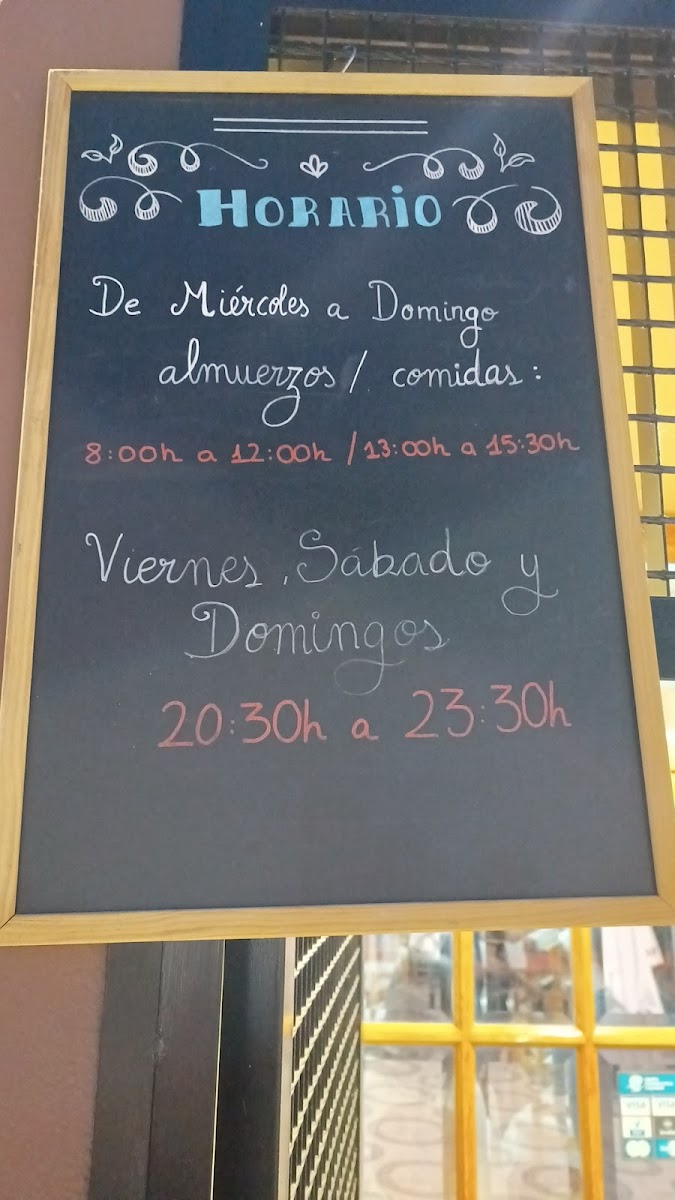 HORARIO
De Miércoles a Domingo
almuerzos / comidas :
8:00h a 12:00h / 13:00h a 15:30h
Viernes , Sábado y
Domingos
20:30h a 23:30h
VISA